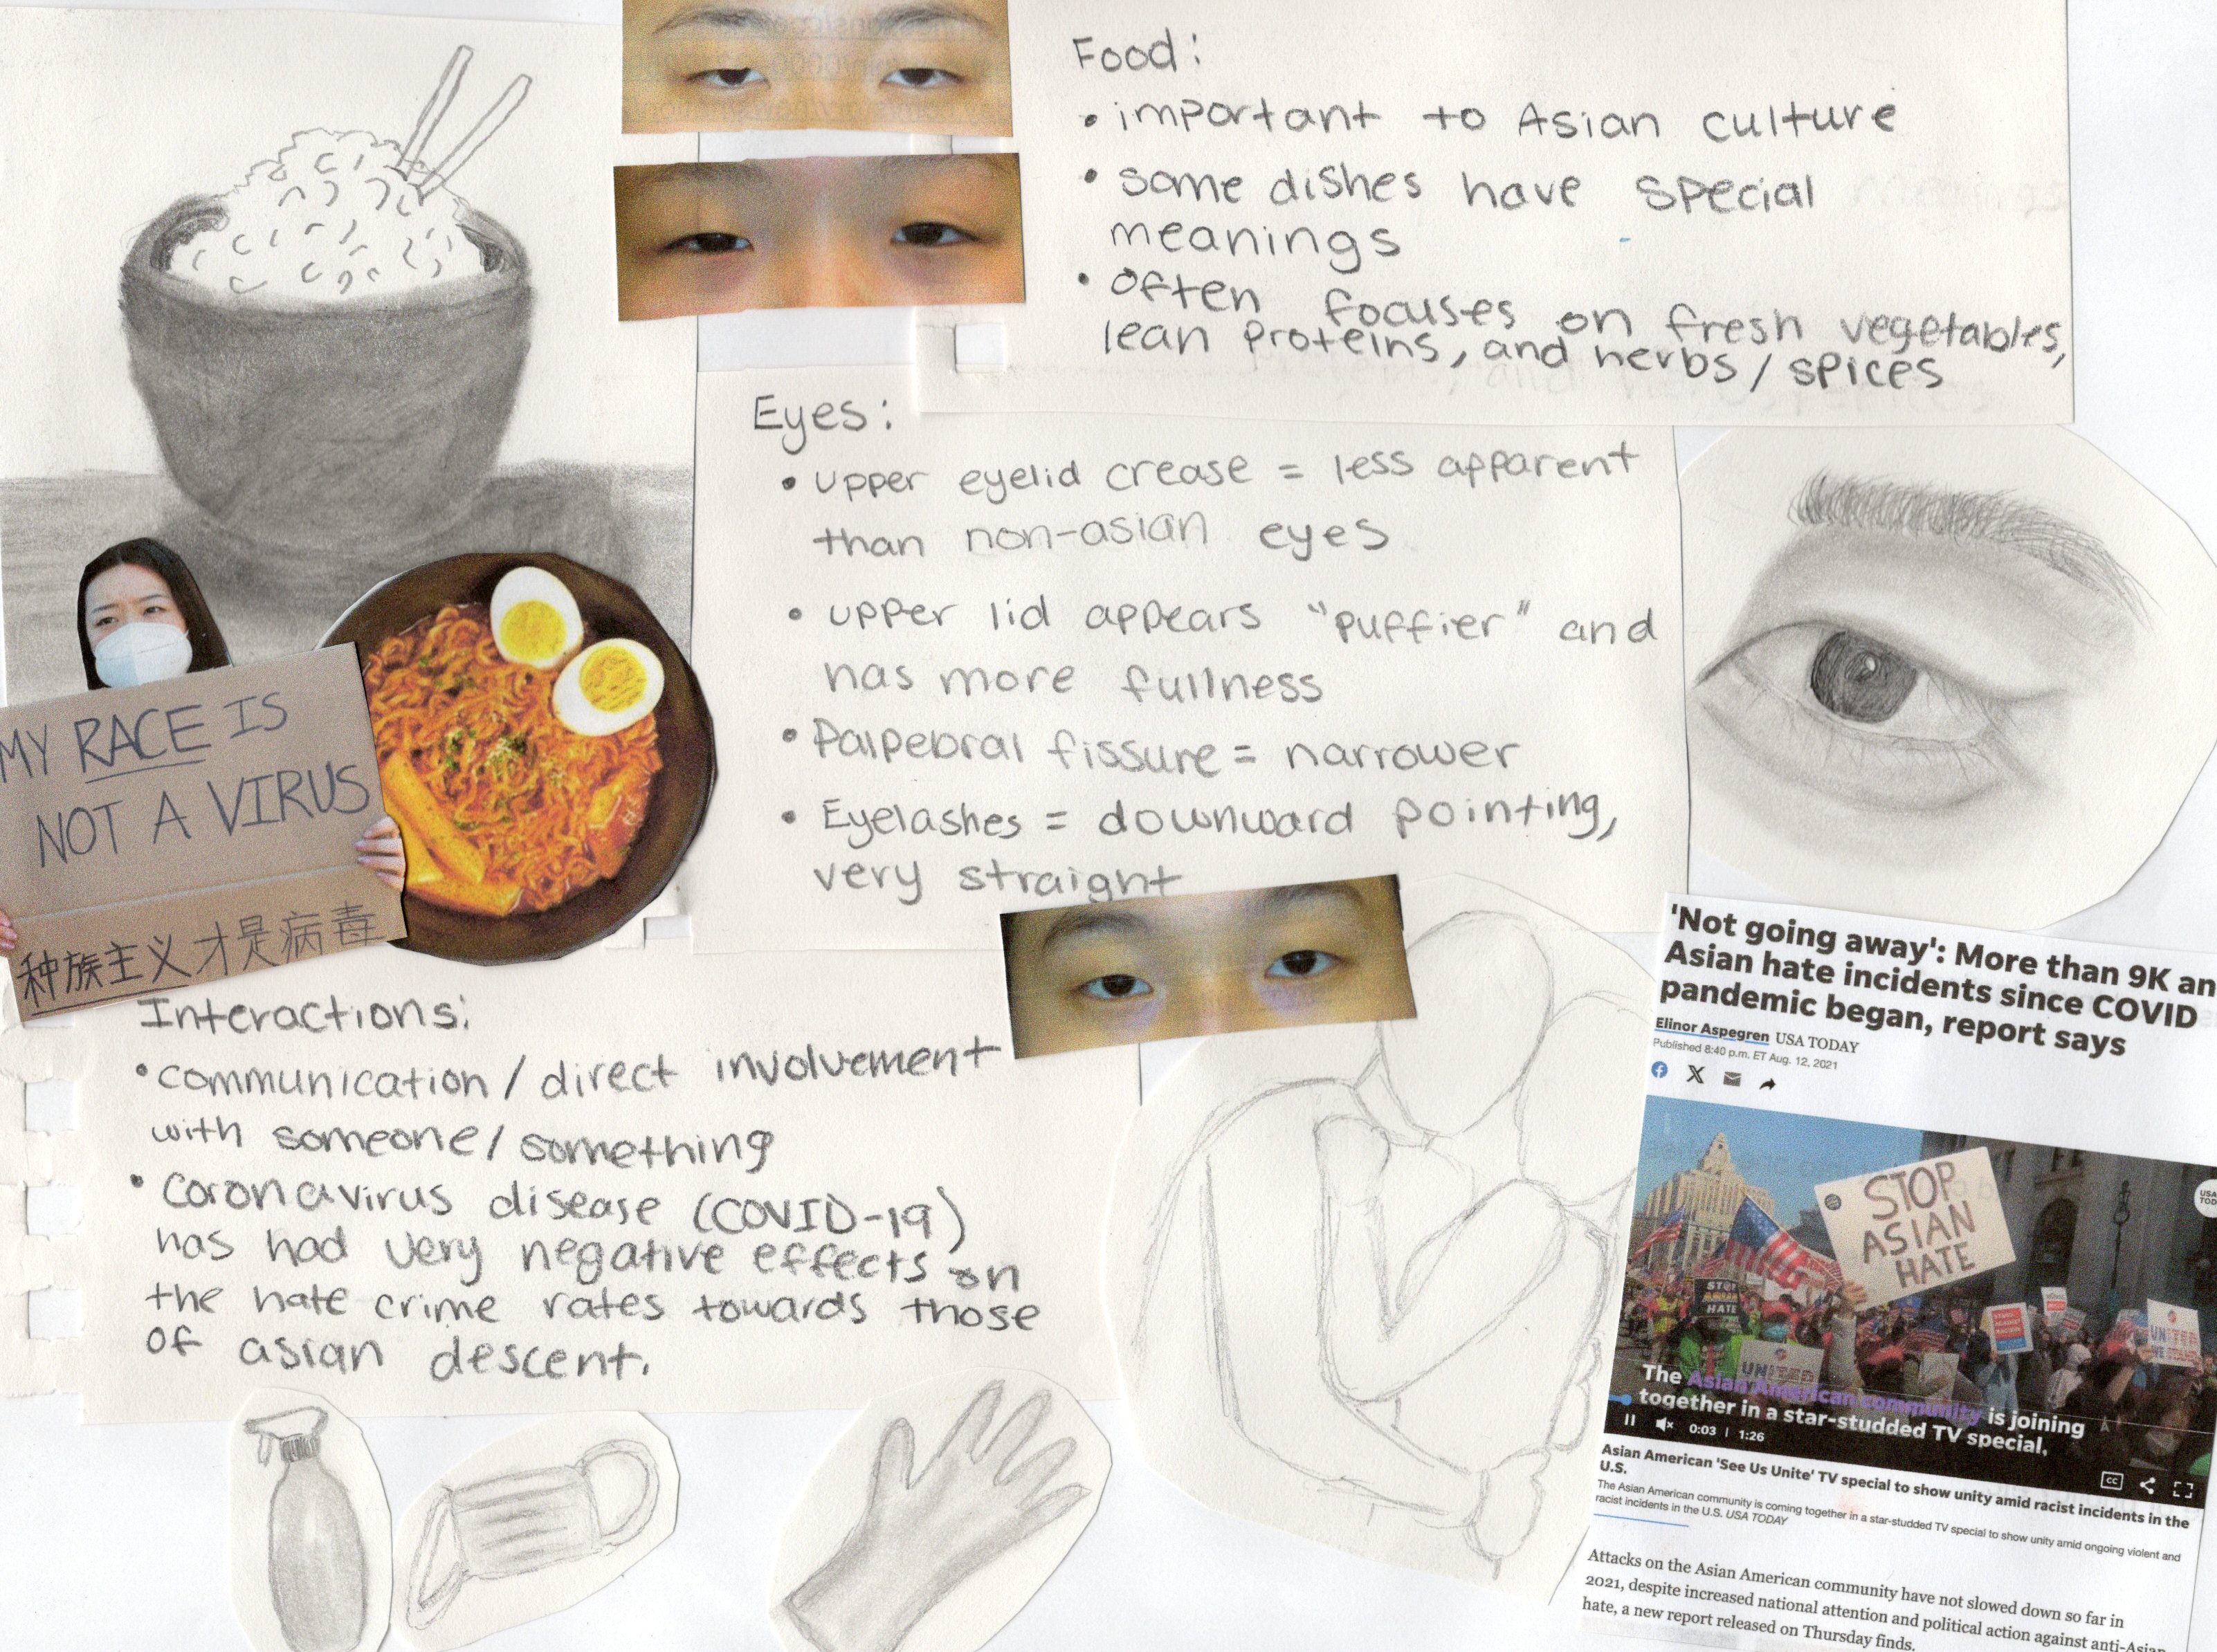 Food:
• important to Asian culture
• some dishes have special
meanings
• often focuses on fresh vegetables,
lean proteins, and herbs/spices
Eyes:
• upper eyelid crease = less apparent
than non-asian eyes
• upper lid appears "puffier" and
has more fullness
• Palpebral fissure = narrower
• Eyelashes = downward pointing,
very straight
MY RACE IS
NOT A VIRUS
种族主义才是病毒
Interactions:
• communication / direct involvement
with someone/something
• coronavirus disease (COVID-19)
has had very negative effects on
the hate crime rates towards those
of asian descent.
'Not going away': More than 9K an
Asian hate incidents since COVID
pandemic began, report says
Elinor Aspegren USA TODAY
Published 8:40 p.m. ET Aug. 12, 2021
USA
TOD
STOP
ASIAN
HATE
STOP
ASIAN
HATE
UNITED
UNITED
WE STAND
The Asian American community is joining
together in a star-studded TV special,
0:03 | 1:26
CC
Asian American 'See Us Unite' TV special to show unity amid racist incidents in the
U.S.
The Asian American community is coming together in a star-studded TV special to show unity amid ongoing violent and
racist incidents in the U.S. USA TODAY
Attacks on the Asian American community have not slowed down so far in
2021, despite increased national attention and political action against anti-Asian
hate, a new report released on Thursday finds.